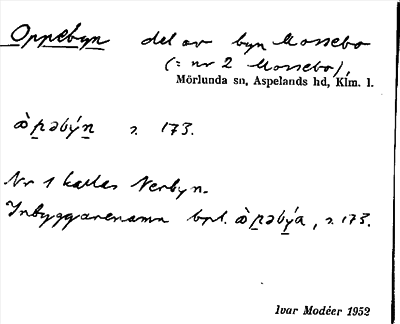 Oppebyn del av byn Mossebo
(= nr 2 Mossebo),
Mörlunda sn, Aspelands hd, Klm. l.
òp̱əbýṉ s. 173.
Nr 1 kallas Nerbyn.
Inbyggarenamn bpl. òp̱əbýa, s. 173.
Ivar Modéer 1952